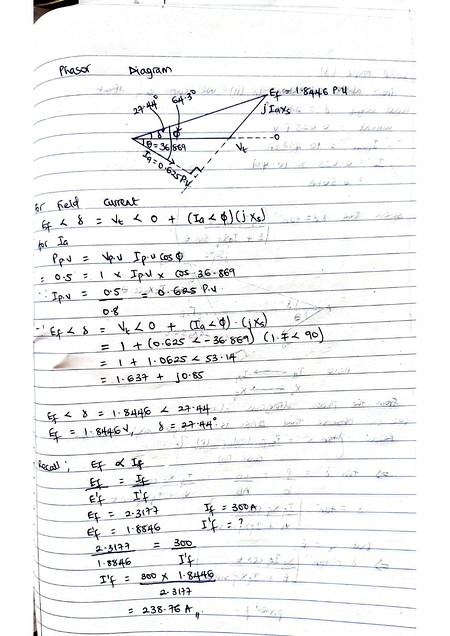 Phasor Diagram
27.44°
64.3°
Ef = 1.8446 P.U
jIaXs
δ
φ
θ = 36.869
Vt
Ia = 0.625 P.U
for Field Current
Ef < δ = Vt < 0 + (Ia < φ)(jxs)
for Ia
Pp.v = Vp.v Ip.v cos φ
= 0.5 = 1 x Ip.v x cos 36.869
∴ Ip.v = 0.5 = 0.625 P.v
0.8
∴ Ef < δ = Vt < 0 + (Ia < φ) . (jxs)
= 1 + (0.625 < -36.869) (1.7 < 90)
= 1 + 1.0625 < 53.14
= 1.637 + j0.85
Ef < δ = 1.8446 < 27.44
Ef = 1.8446V, δ = 27.44°
Recall; Ef ∝ If
Ef = If
E'f I'f
Ef = 2.3177 If = 300A
E'f = 1.8846 I'f = ?
2.3177 = 300
1.8846 I'f
I'f = 300 x 1.8446
2.3177
= 238.76 A